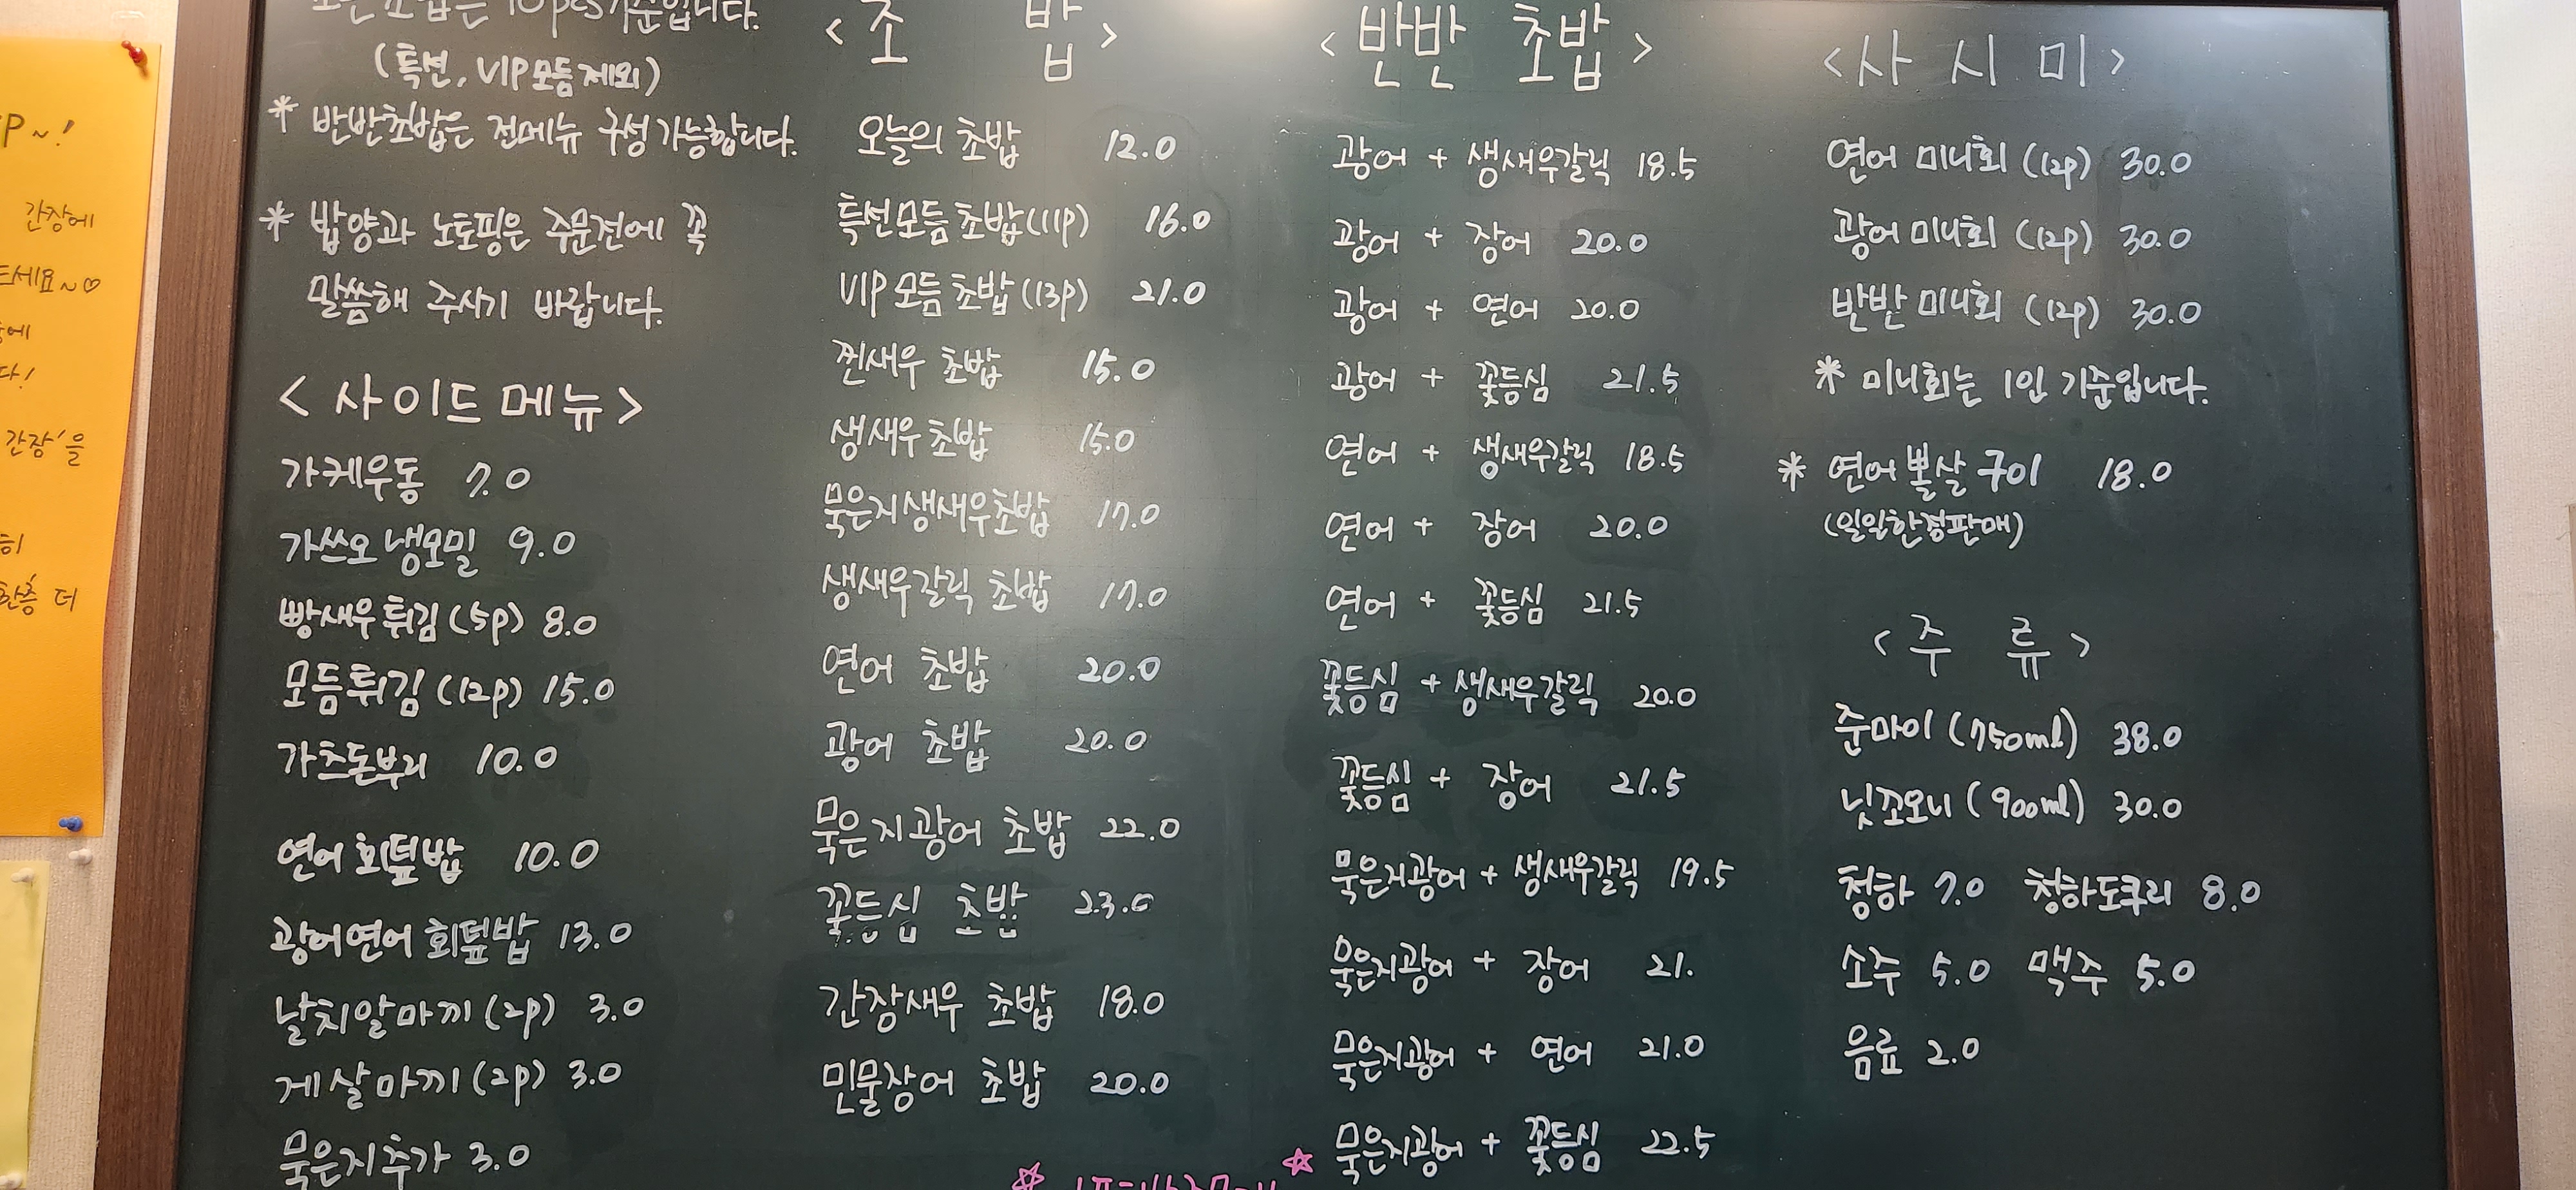 모든 초밥은 10pcs 기준입니다.
(특선, VIP모듬 제외)
* 반반초밥은 전메뉴 구성 가능합니다.
* 밥양과 노토핑은 주문전에 꼭
말씀해 주시기 바랍니다.
<사이드 메뉴>
가케우동 7.0
가쓰오 냉모밀 9.0
빵새우 튀김 (5p) 8.0
모듬튀김 (12p) 15.0
가츠돈부리 10.0
연어 회덮밥 10.0
광어연어 회덮밥 13.0
날치알마끼 (2p) 3.0
게살마끼 (2p) 3.0
묵은지추가 3.0
<초 밥>
오늘의 초밥 12.0
특선모듬 초밥 (11p) 16.0
VIP 모듬 초밥 (13p) 21.0
찐새우 초밥 15.0
생새우 초밥 15.0
묵은지생새우초밥 17.0
생새우갈릭 초밥 17.0
연어 초밥 20.0
광어 초밥 20.0
묵은지광어 초밥 22.0
꽃등심 초밥 23.0
간장새우 초밥 18.0
민물장어 초밥 20.0
<반반 초밥>
광어 + 생새우갈릭 18.5
광어 + 장어 20.0
광어 + 연어 20.0
광어 + 꽃등심 21.5
연어 + 생새우갈릭 18.5
연어 + 장어 20.0
연어 + 꽃등심 21.5
꽃등심 + 생새우갈릭 20.0
꽃등심 + 장어 21.5
묵은지광어 + 생새우갈릭 19.5
묵은지광어 + 장어 21.
묵은지광어 + 연어 21.0
묵은지광어 + 꽃등심 22.5
<사 시 미>
연어 미니회 (12p) 30.0
광어 미니회 (12p) 30.0
반반 미니회 (12p) 30.0
* 미니회는 1인 기준입니다.
* 연어 뽈살 구이 18.0
(일일한정판매)
<주 류>
준마이 (750ml) 38.0
닛꼬오니 (900ml) 30.0
청하 7.0 청하도쿠리 8.0
소주 5.0 맥주 5.0
음료 2.0
P~!
간장에
드세요~♡
다!
간장'을
히
한층 더